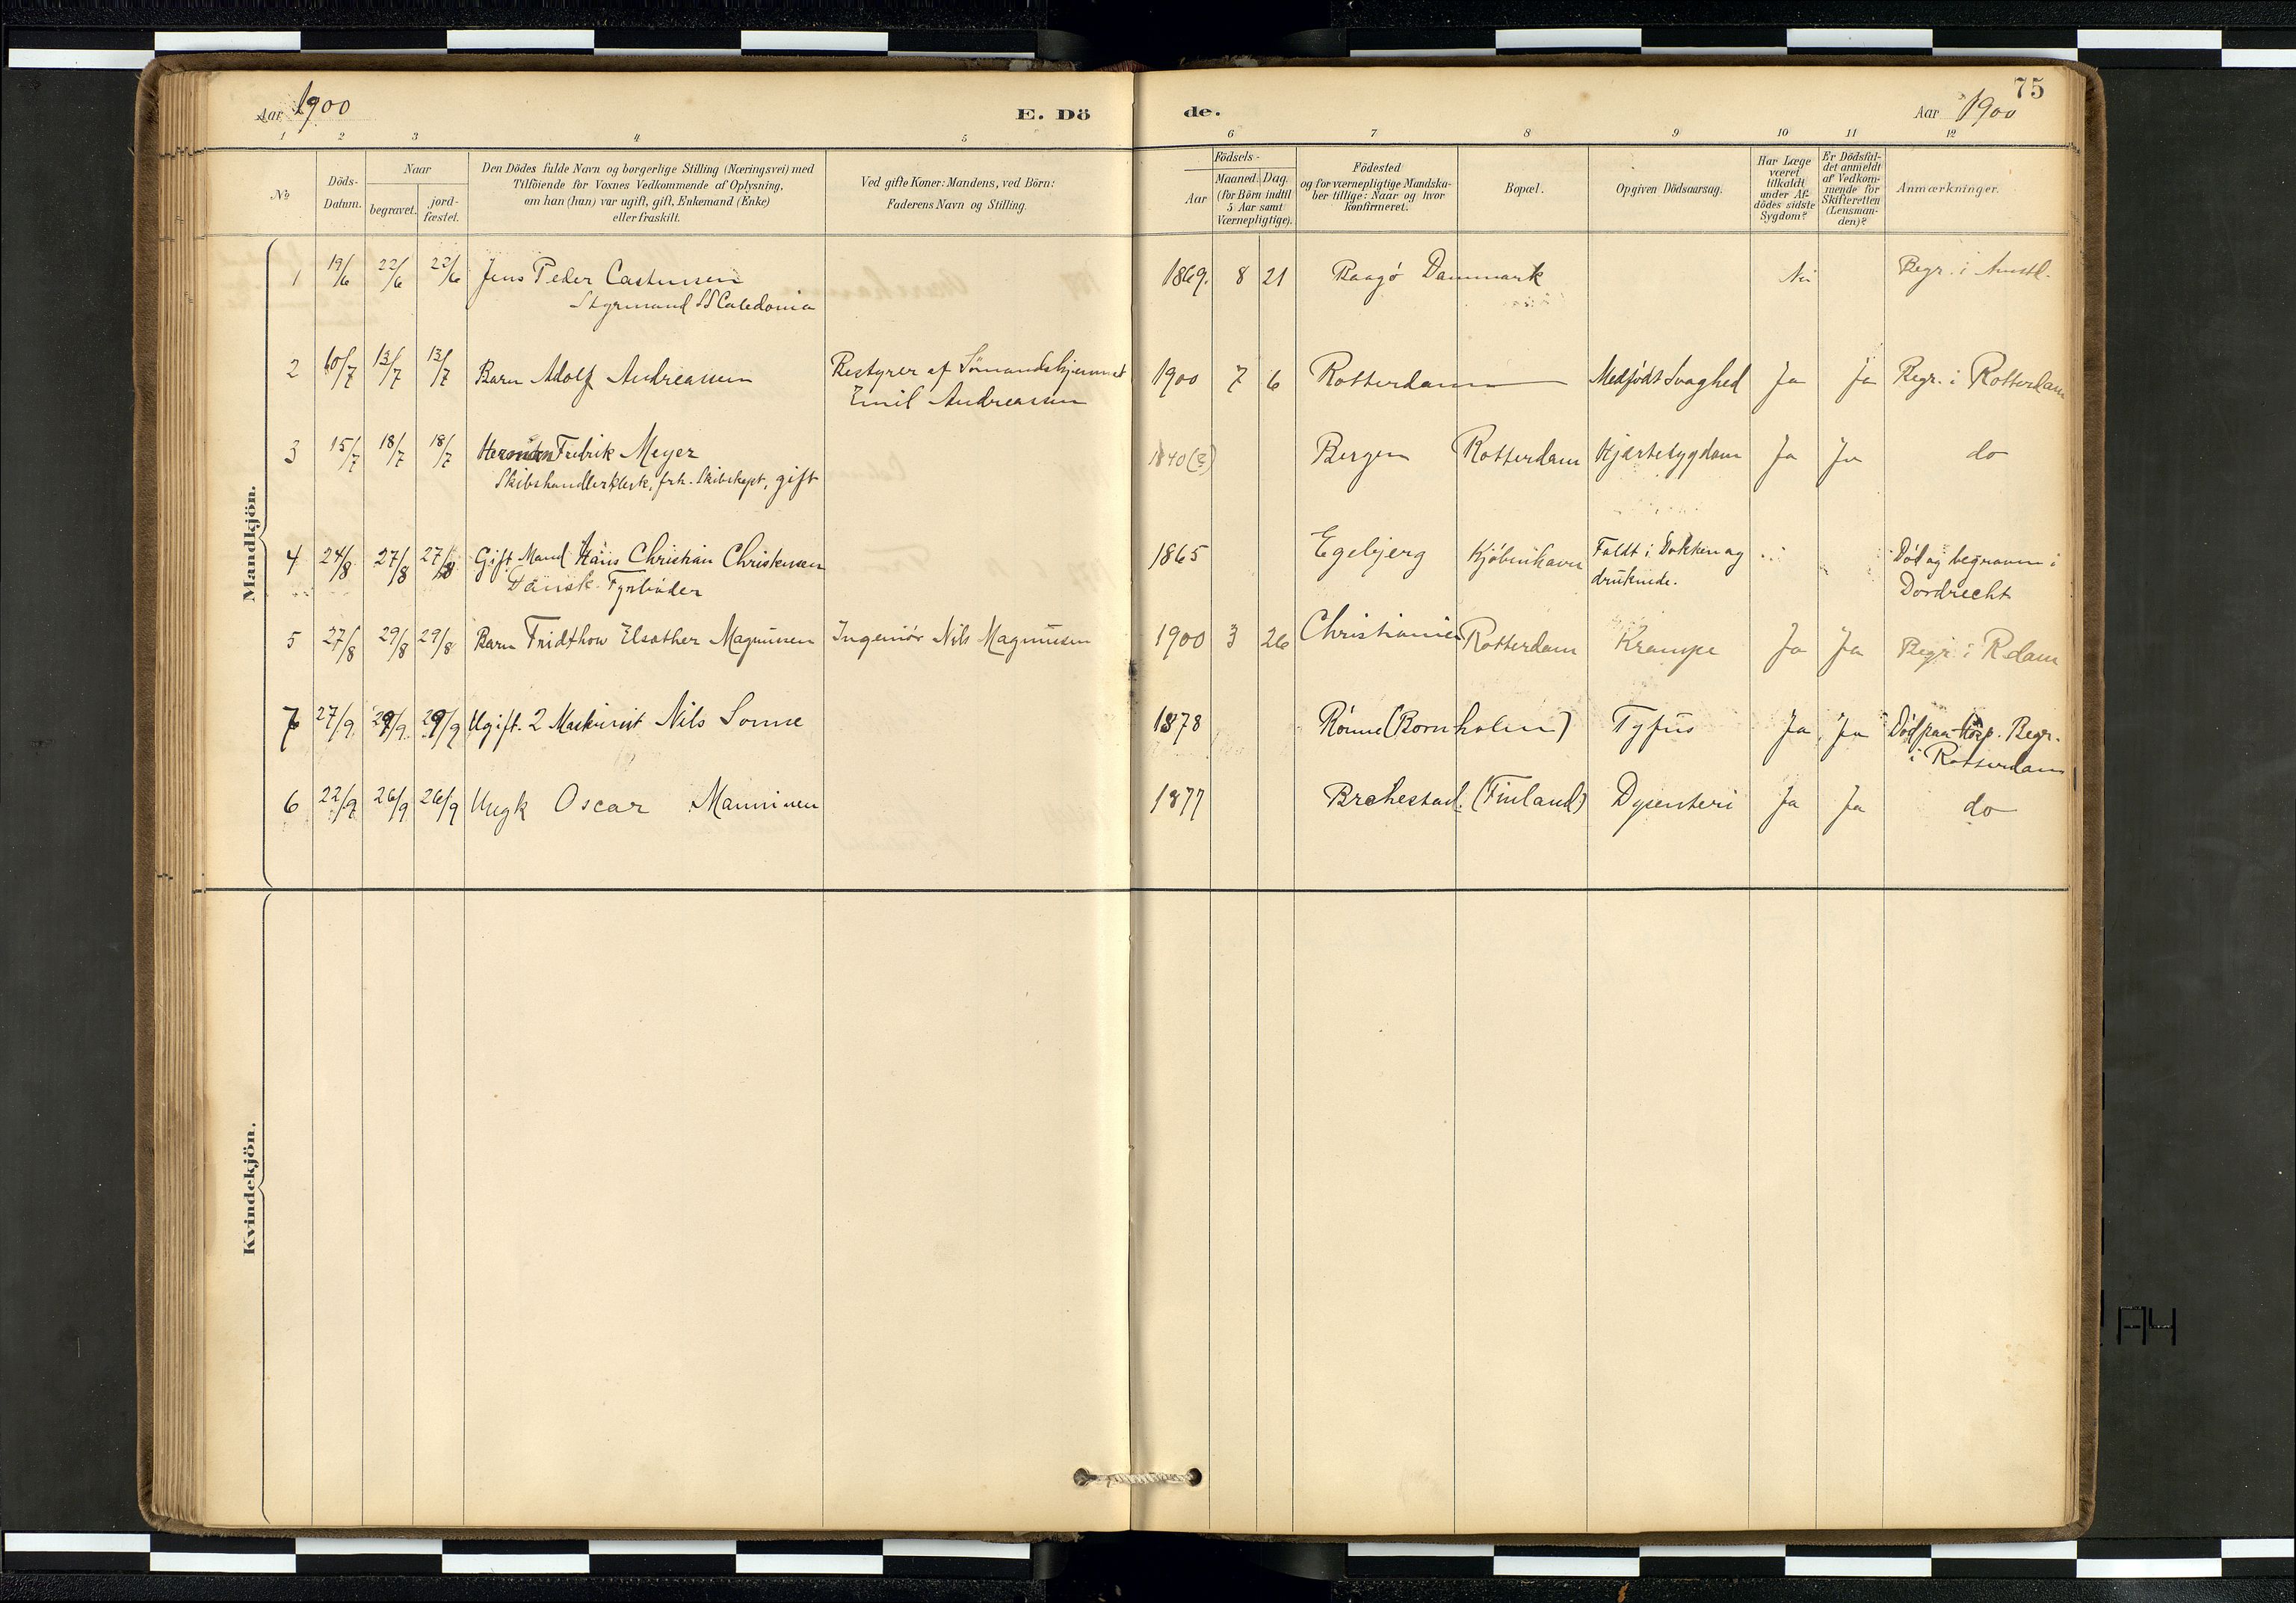 75
Aar 1900 E. Döde. Aar 1900
1 2 3 4 5 6 7 8 9 10 11 12
No
Döds-Datum.
Naar
begravet.
jord-fæstet.
Den Dödes fulde Navn og borgerlige Stilling (Næringsvei) med
Tilföiende for Voxnes Vedkommende af Oplysning,
om han (hun) var ugift, gift, Enkemand (Enke)
eller fraskilt.
Ved gifte Koner: Mandens, ved Börn:
Faderens Navn og Stilling.
Födsels-
Aar
Maaned. Dag.
(for Börn indtil
5 Aar samt
Værnepligtige).
Födested
og for værnepligtige Mandska-
ber tillige: Naar og hvor
konfirmeret.
Bopæl.
Opgiven Dödsaarsag.
Har Læge
været
tilkaldt
under Af-
dödes sidste
Sygdom?
Er Dödsfal-
det anmeldt
af Vedkom-
mende for
Skifteretten
(Lensman-
den)?
Anmærkninger.
Mandkjön.
1 19/6 22/6 22/6 Jens Peder Castensen 1869. 8 21 Baagö Danmark Nei Begr. i Amstl.
Styrmand SS Caledonia
2 10/7 13/7 13/7 Barn Adolf Andreassen Bestyrer af Sömandshjemmet 1900 7 6 Rotterdam Medfödt Svaghed Ja Ja Begr. i Rotterdam
Emil Andreassen
3 15/7 18/7 18/7 Fredrik Meyer 1840(?) Bergen Rotterdam Hjertesygdom Ja Ja do
Skibshandlerklerk, frh. Skibskapt, gift
4 24/8 27/8 27/8 Gift Mand Hans Christian Christensen 1865 Egebjerg Kjöbenhavn Faldt i Dokken og Död og begraven i
Dansk Fyrböder druknede. Dordrecht
5 27/8 29/8 29/8 Barn Fridthow Elsather Magnussen Ingeniör Nils Magnussen 1900 3 26 Christiania Rotterdam Krampe Ja Ja Begr. i R.dam
7 27/9 29/9 29/9 Ugift. 2 Maskinist Nils Sonne 1878 Rönne (Bornholm) Tyfus Ja Ja Död paa Hosp. Begr.
i Rotterdam
6 22/9 26/9 26/9 Ungk Oscar Manninen 1877 Brahestad. (Finland) Dysenteri Ja Ja do
Kvindekjön.